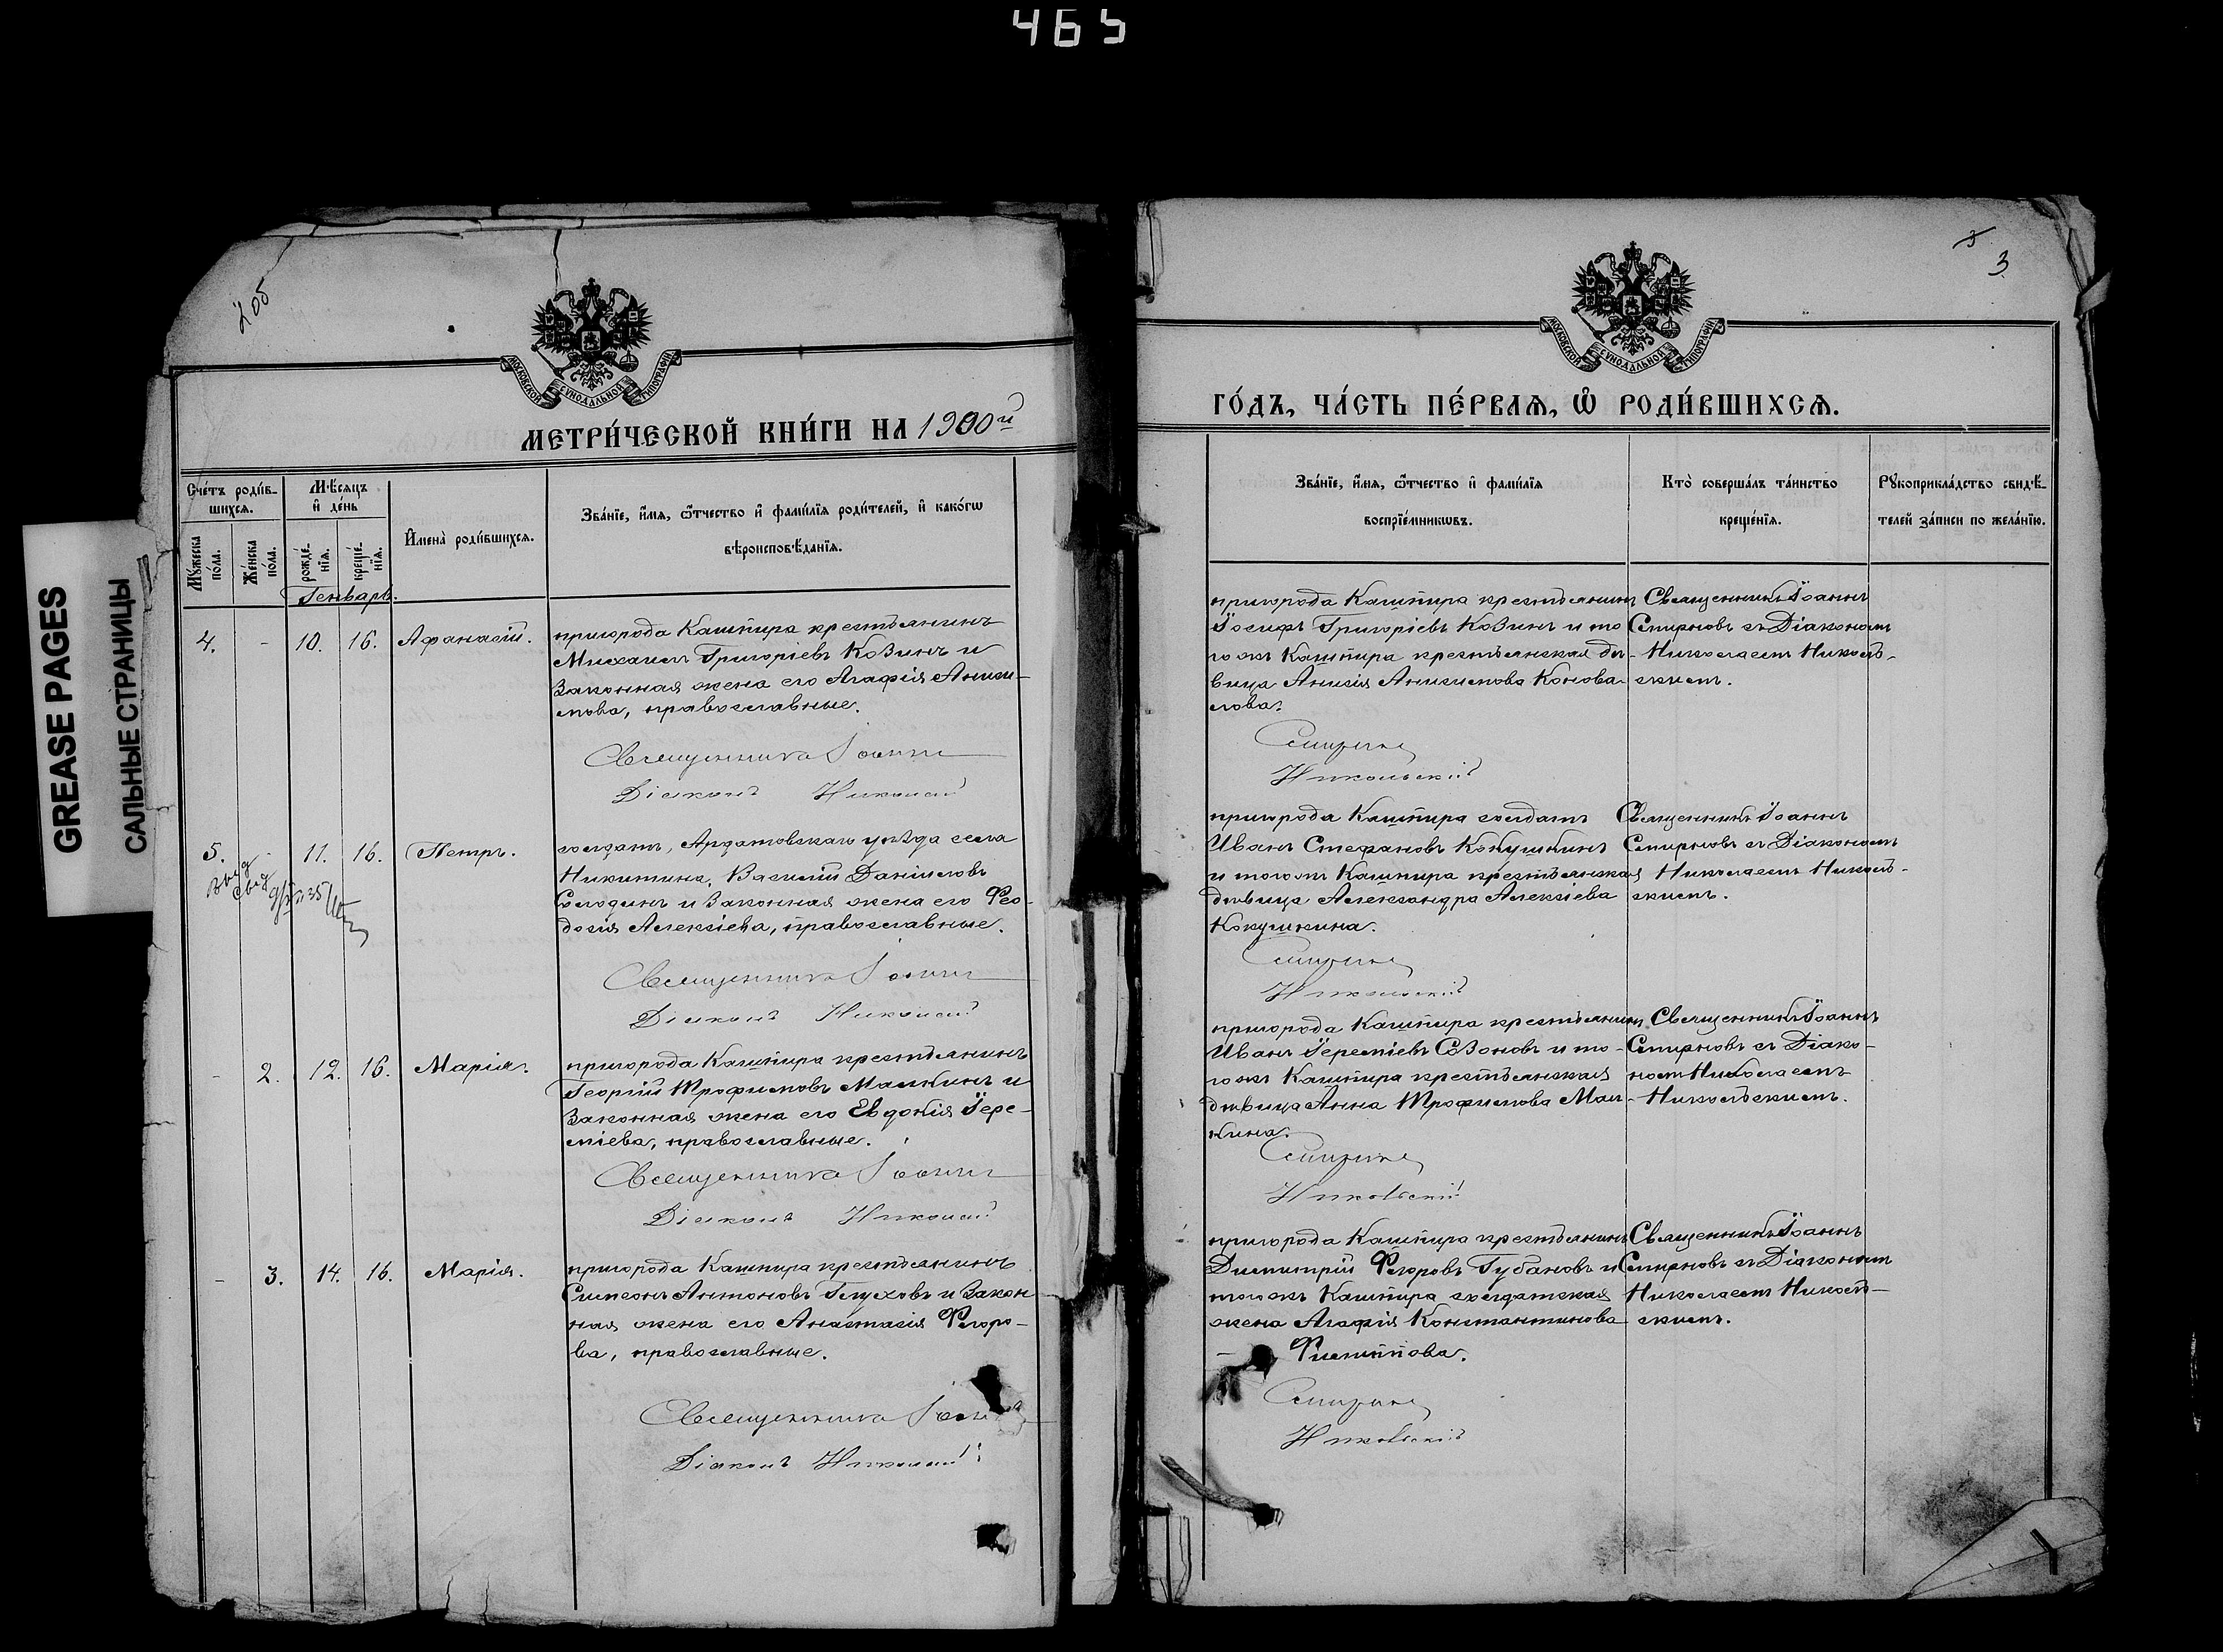 465
GREASE PAGES
САЛЬНЫЕ СТРАНИЦЫ
2 об
МОСКОВСКОЙ СѴНОДАЛЬНОЙ ТИПОГРАФІИ
МЕТРИ́ЧЕСКОЙ КНИ́ГИ НА 1900й
Сче́тъ роди́в-
шихся.
Мꙋ́жеска
по́ла.
Же́нска
по́ла.
Мѣ́сяцъ
и҆ де́нь
рожде́-
нїѧ.
креще́-
нїѧ.
И҆мена̀ роди́вшихсѧ.
Зва́нїе, и҆́мѧ, ѻ҆́тчество и҆ фами́лїѧ роди́телей, и҆ како́гѡ
вѣроисповѣ́данїѧ.
Генварь.
4.
-
10.
16.
Аѳанасій.
пригорода Кашпира крестьянинъ
Михаилъ Григоріевъ Козинъ и
законная жена его Агафія Аниси-
мова, православные.
Священникъ Іоаннъ
Діаконъ Николай
5.
-
11.
16.
Петръ.
солдатъ, Ардатовскаго уѣзда села
Никитина, Василій Даніиловъ
Солодинъ и законная жена его Ѳео-
досія Алексіева, православные.
Священникъ Іоаннъ
Діаконъ Николай
-
2.
12.
16.
Марія.
пригорода Кашпира крестьянинъ
Георгій Трофимовъ Малкинъ и
законная жена его Евдокія Іере-
міева, православные.
Священникъ Іоаннъ
Діаконъ Николай
-
3.
14.
16.
Марія.
пригорода Кашпира крестьянинъ
Симеонъ Антоновъ Глуховъ и закон
ная жена его Анастасія Ѳедоро-
ва, православные.
Священникъ Іоаннъ
Діаконъ Николай
3
3
МОСКОВСКОЙ СѴНОДАЛЬНОЙ ТИПОГРАФІИ
ГО́ДЪ, ЧА́СТЬ ПЕ́РВАѦ, Ѡ҆ РОДИ́ВШИХСѦ.
Зва́нїе, и҆́мѧ, ѻ҆́тчество и҆ фами́лїѧ
воспрїе́мникѡвъ.
Кто̀ соверша́лъ та́инство
креще́нїѧ.
Рꙋкоприкла́дство свидѣ́-
телей за́писи по жела́нїю.
пригорода Кашпира крестьянинъ
Іосифъ Григоріевъ Козинъ и то
го жъ Кашпира крестьянская дѣ-
вица Анисія Анисимова Конова-
лова.
Священникъ Іоаннъ
Смирновъ съ Діакономъ
Николаемъ Николь-
скимъ.
Смирновъ
Никольскій
пригорода Кашпира солдатъ
Иванъ Стефановъ Кокушкинъ
и того жъ Кашпира крестьянская
дѣвица Александра Алексіева
Кокушкина.
Священникъ Іоаннъ
Смирновъ съ Діакономъ
Николаемъ Николь-
скимъ.
Смирновъ
Никольскій
пригорода Кашпира крестьянинъ
Иванъ Іереміевъ Созоновъ и то-
го жъ Кашпира крестьянская
дѣвица Анна Трофимова Мал-
кина.
Священникъ Іоаннъ
Смирновъ съ Діако-
номъ Николаемъ
Никольскимъ.
Смирновъ
Никольскій
пригорода Кашпира крестьянинъ
Димитрій Ѳедоровъ Губановъ и
того жъ Кашпира солдатская
жена Агафія Константинова
Филиппова.
Священникъ Іоаннъ
Смирновъ съ Діакономъ
Николаемъ Николь-
скимъ.
Смирновъ
Никольскій